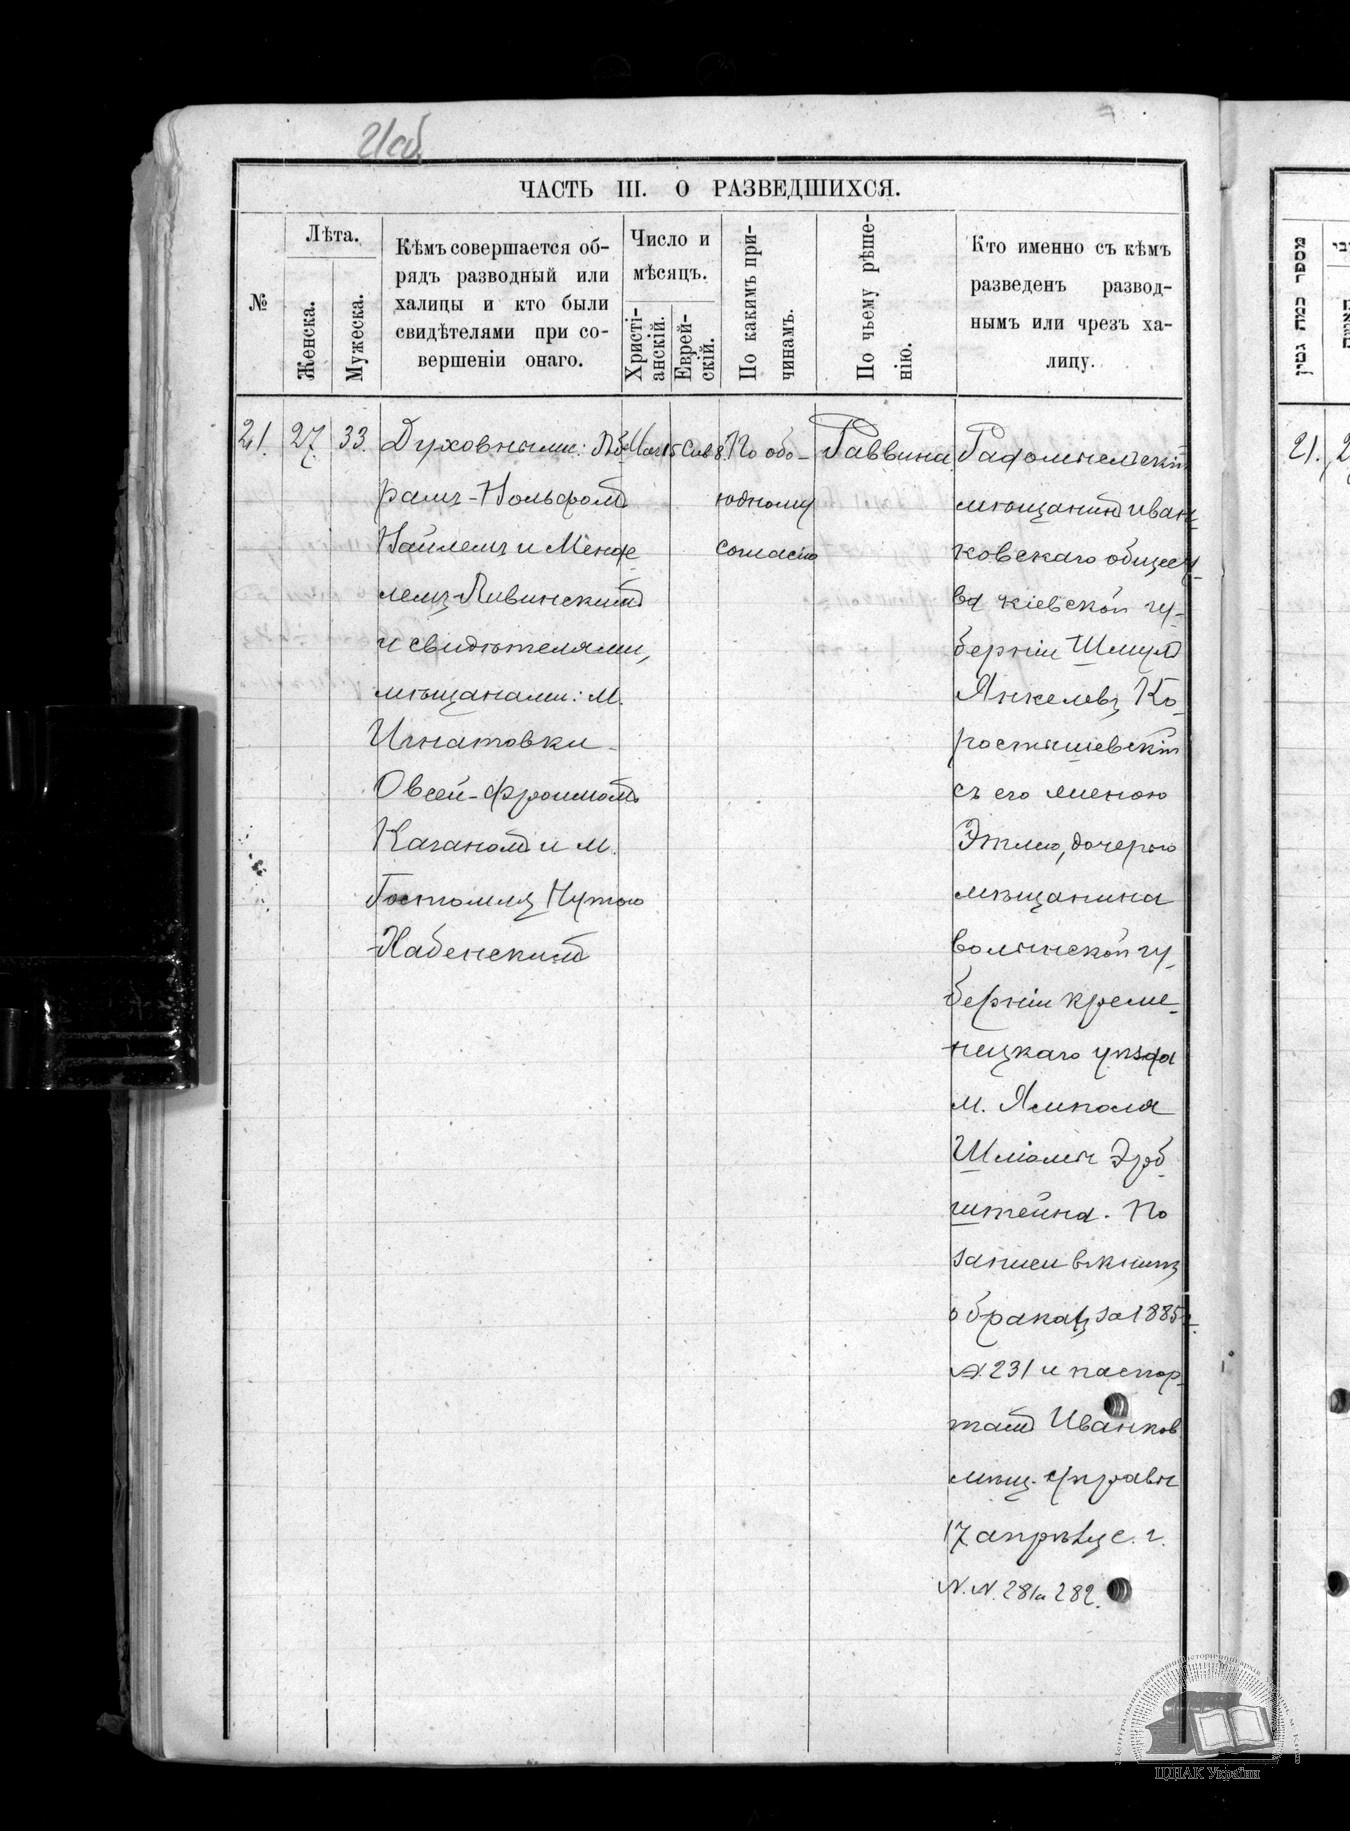 21об
ЧАСТЬ III. О РАЗВЕДШИХСЯ.
№
Лѣта.
Женска.
Мужеска.
Кѣмъ совершается об-
рядъ разводный или
халицы и кто были
свидѣтелями при со-
вершеніи онаго.
Число и
мѣсяцъ.
Христі-
анскій.
Еврей-
скій.
По какимъ при-
чинамъ.
По чьему рѣше-
нію.
Кто именно съ кѣмъ
разведенъ развод-
нымъ или чрезъ ха-
лицу.
21. 27 33.
Духовными:
рамъ-Вольфомъ
и Менде
лемъ-Ливинскимъ
и свидѣтелями,
мѣщанами: м.
Игнатовки
Овсей-Фроимомъ
Каганомъ и м.
Гостомля Нутою
Хабенскимъ
По обо-
юдному
согласію
Раввина
Радомысльскій
мѣщанинъ Иван-
ковскаго общест-
ва кіевской гу-
берніи Шмуль
Янкелевъ Ко-
ростышевскій
съ его женою
Этлею, дочерью
мѣщанина
волынской гу-
берніи креме-
нецкаго уѣзда
м. Ямполя
Шліомы Эрб-
штейна. По
записи въ книгѣ
о бракахъ за 1885 г.
№ 231 и паспор-
тамъ Иванков.
мѣщ. управы
17 апрѣля с. г.
N.N. 281 и 282.
מספר כמה גטין
האשה
21.
ЦДІАК України